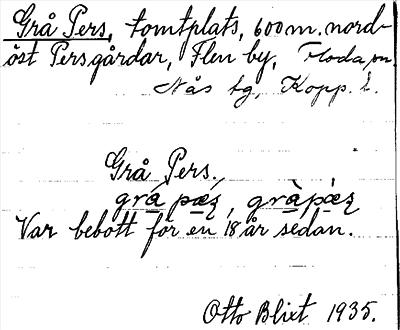 Grå Pers, tomtplats, 600 m. nord-
öst Persgårdar, Flen by, Floda sn.
Nås tg, Kopp. l.
Grå Pers.
grá pæʂ, gràpæ̀ʂ
Var bebott för en 18 år sedan.
Otto Blixt 1935.